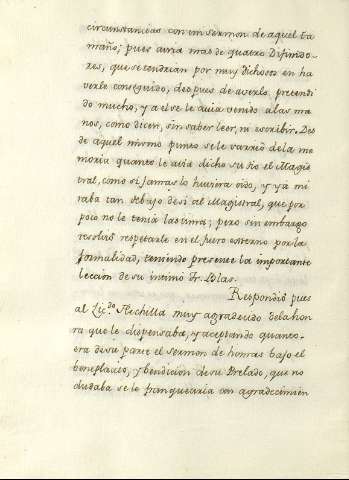 circunstancias con un sermon de aquel ta
maño; pues avria mas de quatro Difinido-
res, que se tendrian por muy dichosos en ha
verle conseguido, despues de averle preten
dido mucho, y a el se le avia venido a las ma
nos, como dicen, sin saber leer, ni escribir. Des
de aquel mismo punto se le varriò de la me
moria quanto le avia dicho su tio el Magis
tral, como si jamas lo huviera oido, y ya mi
raba tan debajo de si al Magistral, que por
poco no le tenia lastima; pero sin embargo
resolviò respetarle en el fuero externo por la
formalidad, teniendo presente la importante
leccion de su intimo Fr. Blas.
Respondiò pues
al Lic.do Flechilla muy agradecido de la hon
ra que le dispensaba, y aceptando quanto
era de su parte el sermon de honras bajo el
beneplacito, y bendicion de su Prelado, que no
dudaba se le franquearia con agradecimien